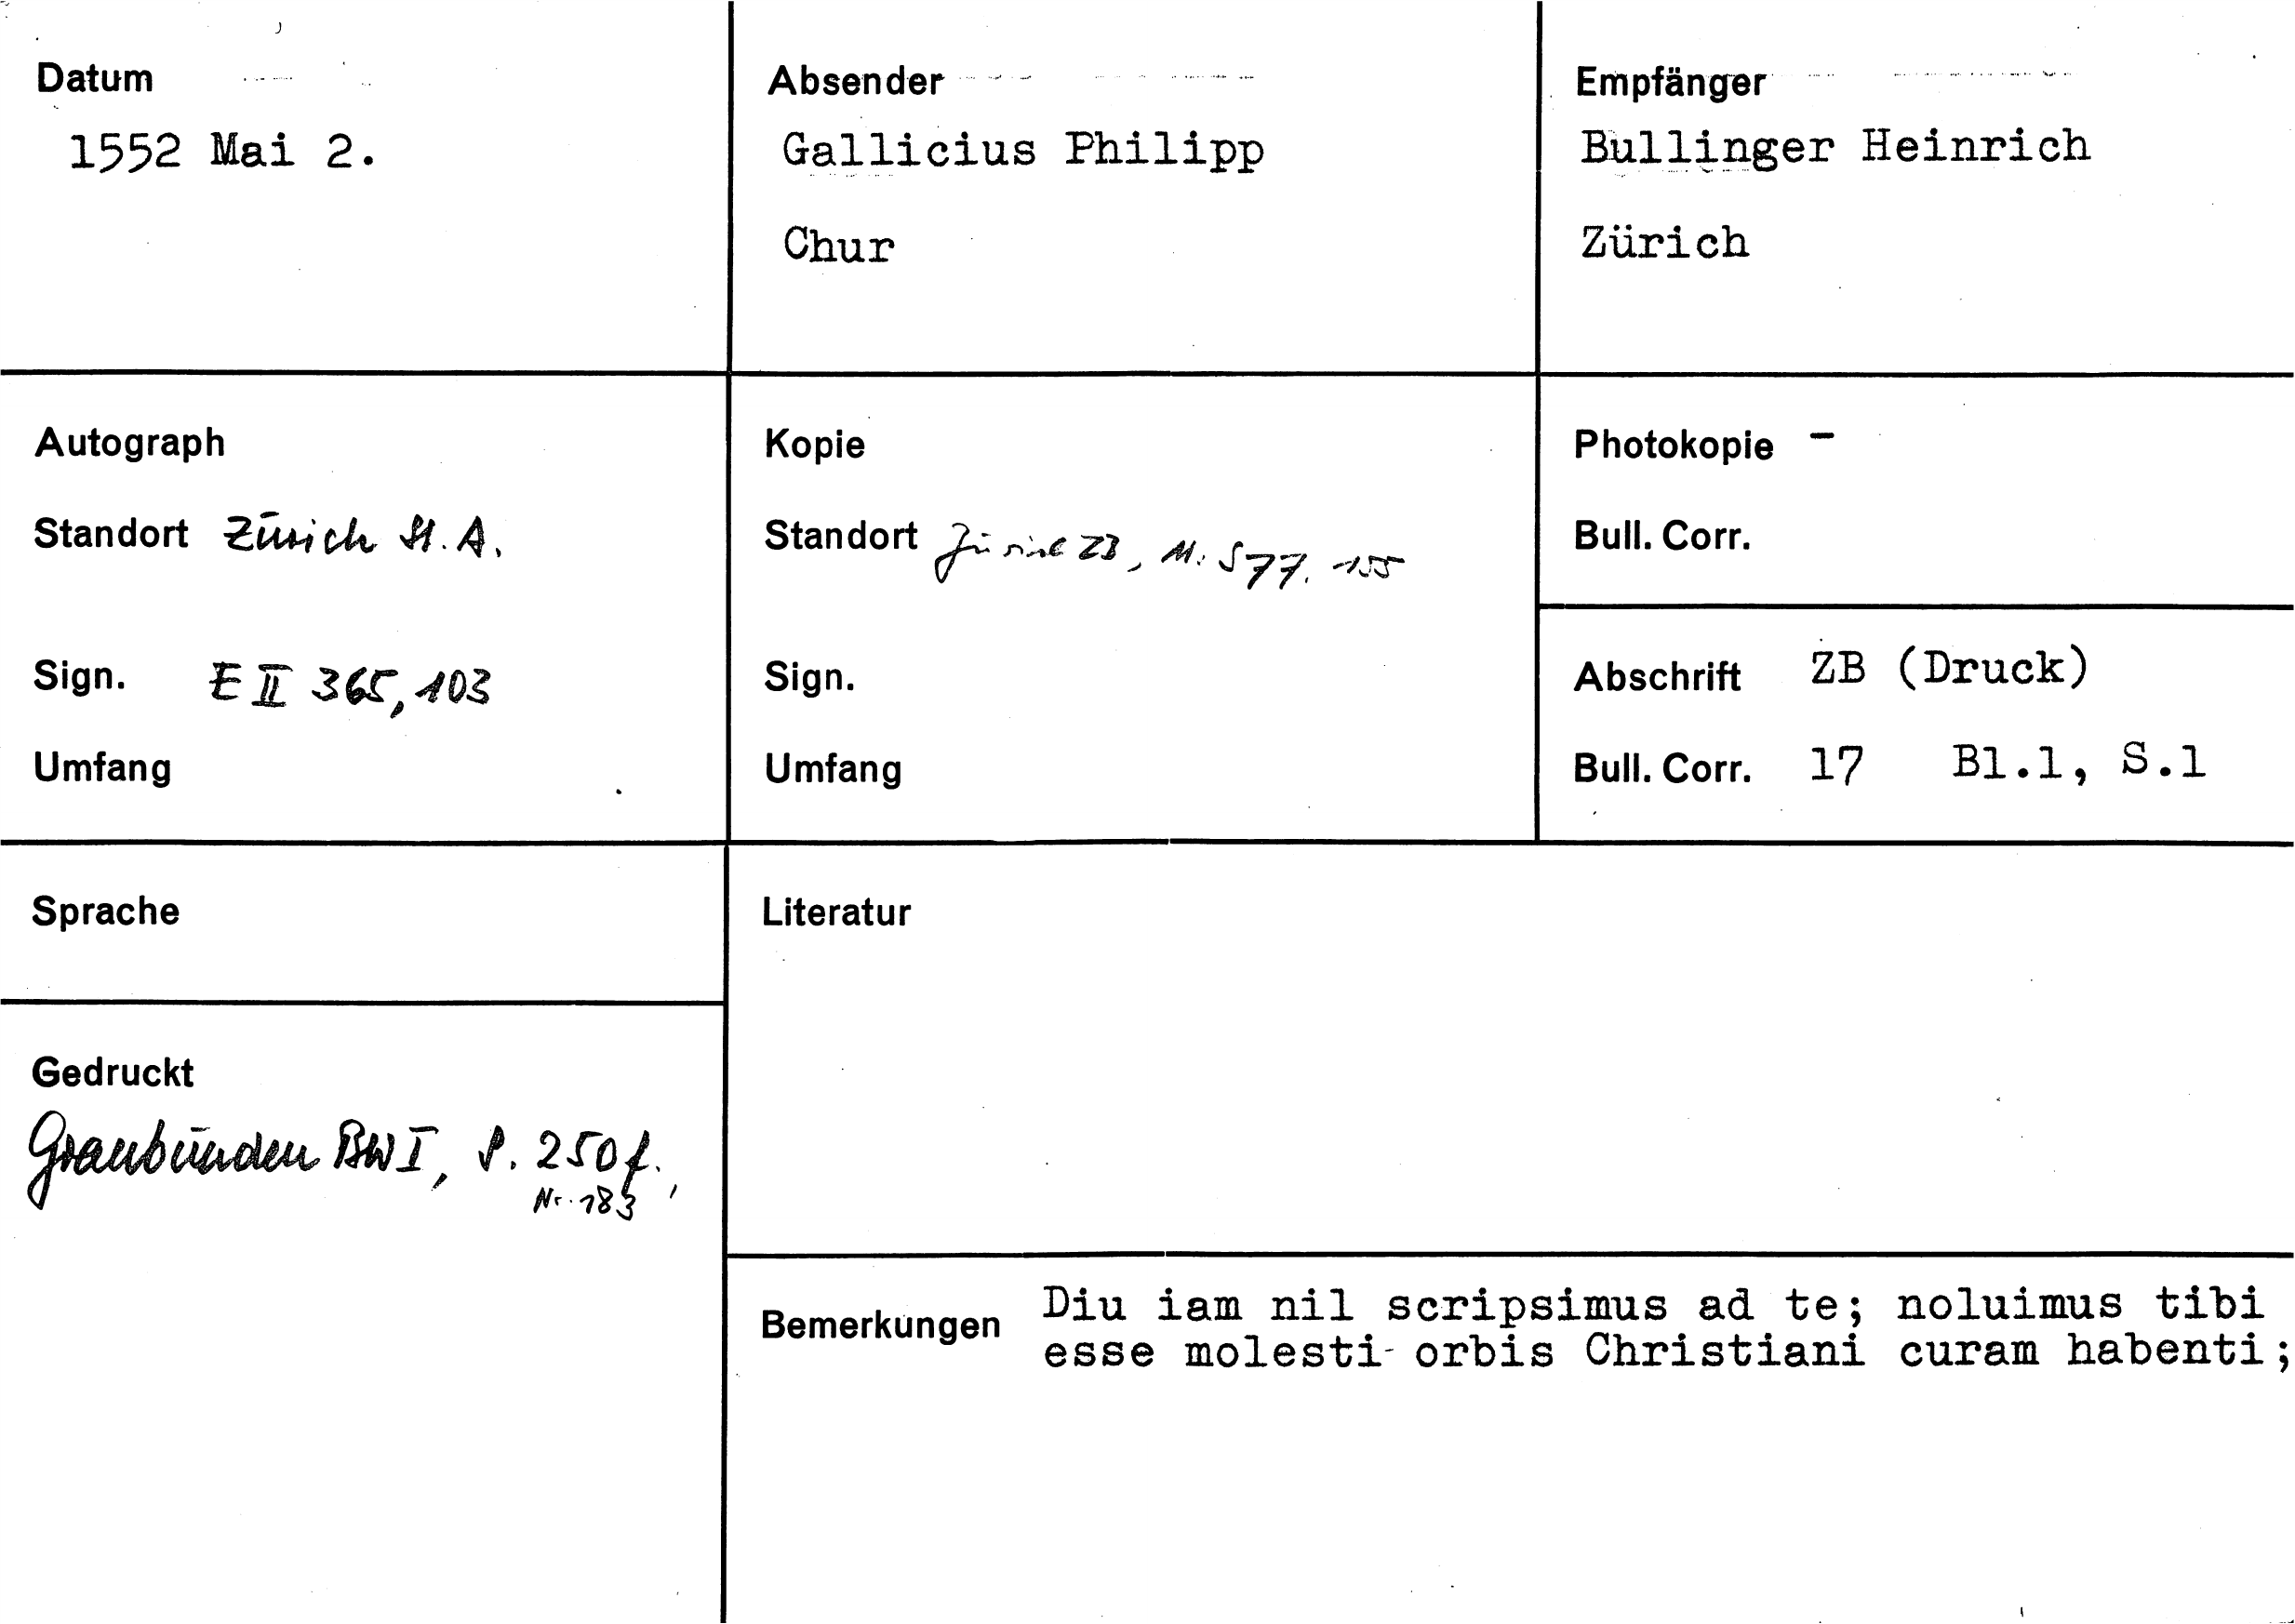 Datum
1552 Mai 2.
Absender
Gallicius Philipp
Chur
Empfänger
Bullinger Heinrich
Zürich
Autograph
Standort Zürich St. A.
Sign. E II 365, 103
Umfang
Kopie
Standort Zürich ZB, Ms S 77. 155
Sign.
Umfang
Photokopie -
Bull. Corr.
Abschrift ZB (Druck)
Bull. Corr. 17 Bl.1, S.1
Sprache
Literatur
Gedruckt
Graubünden BW I, S. 250 f.,
Nr. 183
Bemerkungen Diu iam nil scripsimus ad te; noluimus tibi
esse molesti orbis Christiani curam habenti;